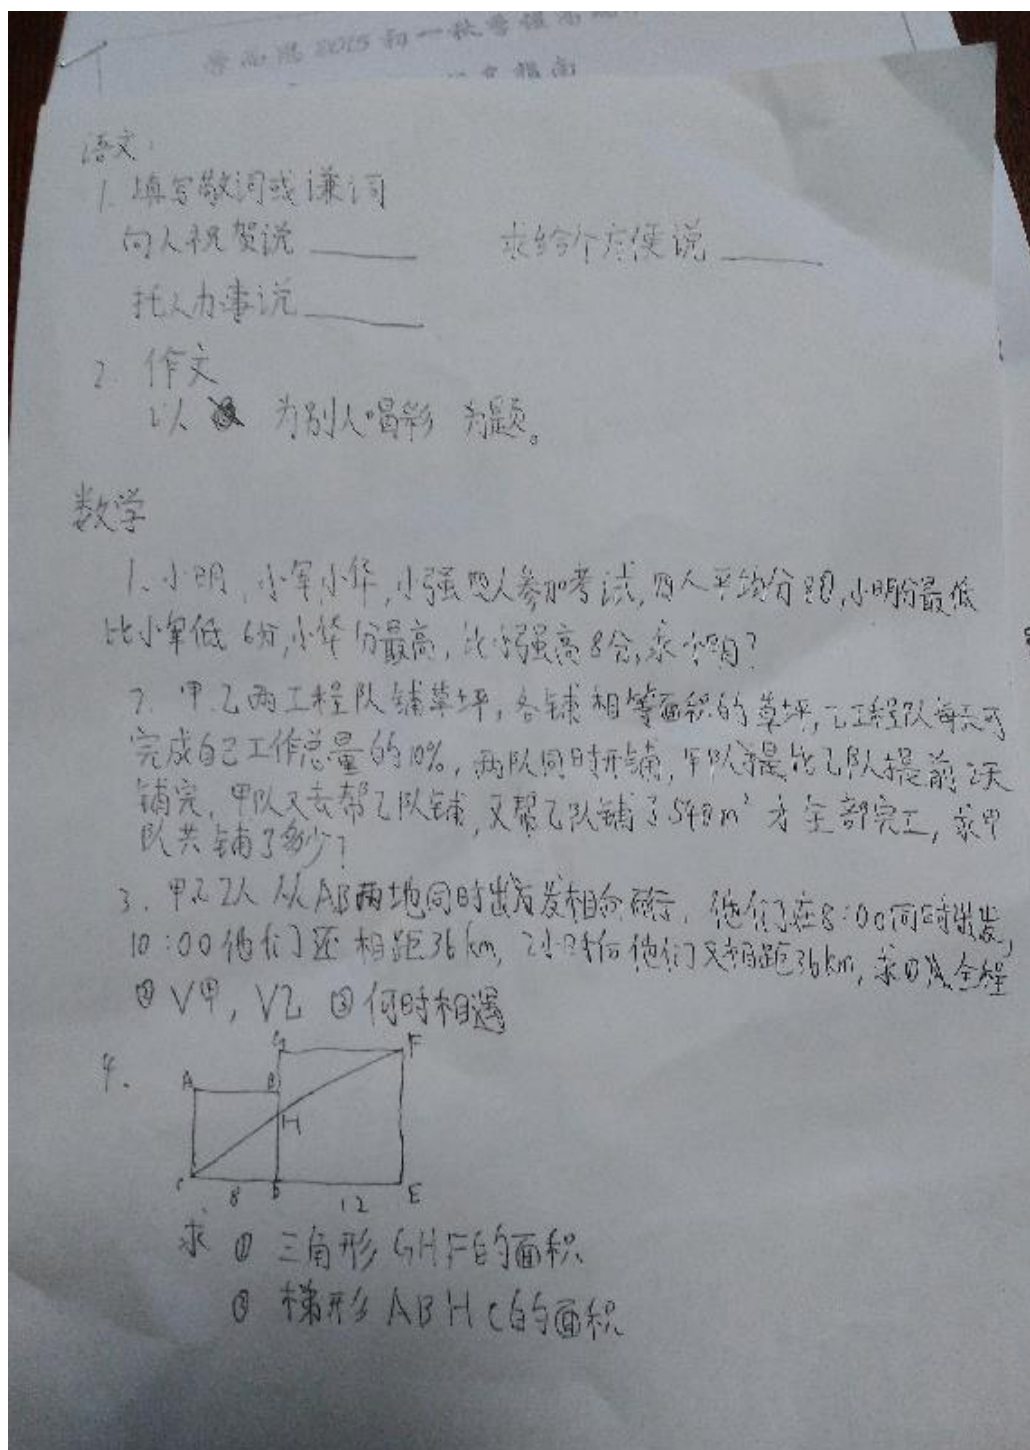 2015初一秋季
指南
语文:
1. 填写敬词或谦词
向人祝贺说______ 求给个方便说______
托人办事说______
2. 作文
以 为别人喝彩 为题。
数学
1、小明,小军,小华,小强四人参加考试,四人平均分80,小明分最低
比小军低6分,小华分最高,比小强高8分,求小明?
2. 甲乙两工程队铺草坪,各铺相等面积的草坪,乙工程队每天可
完成自己工作总量的10%,两队同时开铺,甲队比乙队提前2天
铺完,甲队又去帮乙队铺,又帮乙队铺了548m² 才全部完工,求甲
队共铺了多少?
3. 甲乙2人从AB两地同时出发相向而行,他们在8:00同时出发,
10:00他们还相距36km,2小时后他们又相距36km,求①全程
②V甲,V乙 ③何时相遇
4、
G F
A B
H
C 8 D 12 E
求 ① 三角形GHF的面积
② 梯形ABHC的面积